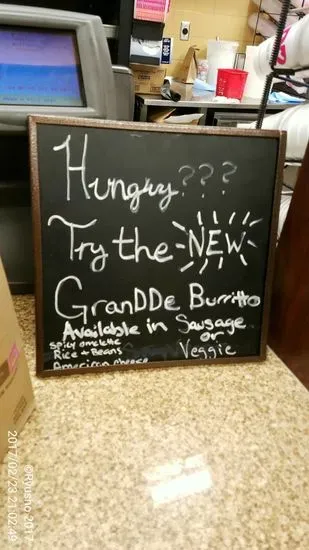 Hungry???
Try the NEW
GranDDe Burritto
Available in Sausage
or
Veggie
spicy omelette
Rice + Beans
American cheese
2017/02/23 21:02:49